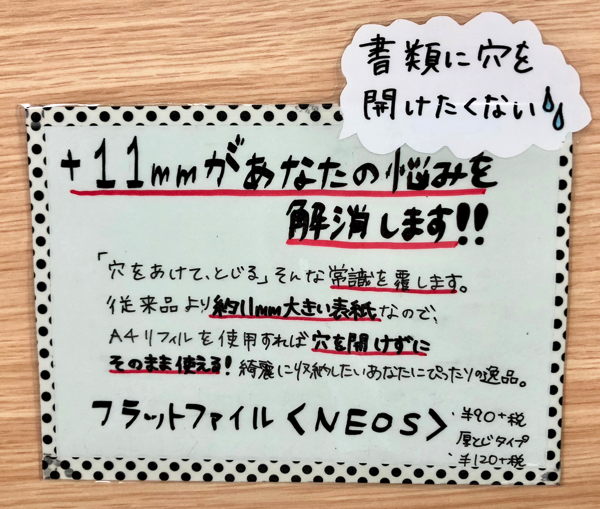 書類に穴を
開けたくない
+11mmがあなたの悩みを
解消します!!
「穴をあけて、とじる」そんな常識を覆します。
従来品より約11mm大きい表紙なので、
A4リフィルを使用すれば穴を開けずに
そのまま使える!綺麗に収納したいあなたにぴったりの逸品。
フラットファイル〈NEOS〉
・¥90+税
厚とじタイプ
・¥120+税